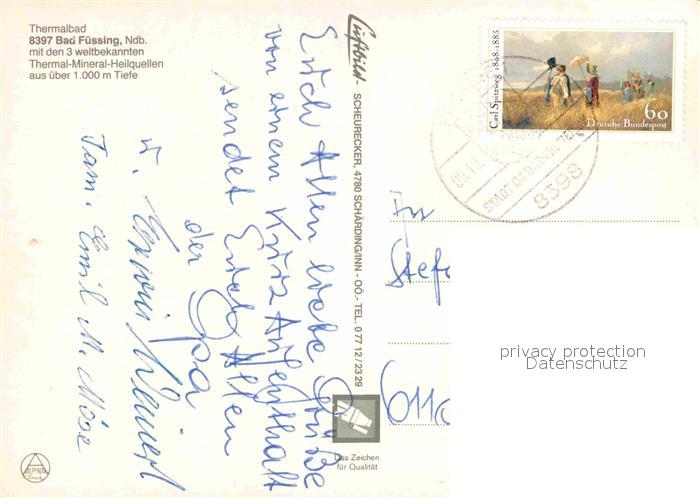 Thermalbad
8397 Bad Füssing, Ndb.
mit den 3 weltbekannten
Thermal-Mineral-Heilquellen
aus über 1.000 m Tiefe
Euch Allen liebe Grüße
von einem Kurz Aufenthalt
sendet Euch Allen
der Opa
u. Erwin
Fam. Emil M.
Luftbild- SCHEURECKER, 4780 SCHÄRDING/INN - OÖ.- TEL. 0 77 12 / 23 29
Das Zeichen
für Qualität
ALPINA
Carl Spitzweg 1808-1885
60
Deutsche Bundespost
8398
An
Stef
6110
privacy protection
Datenschutz